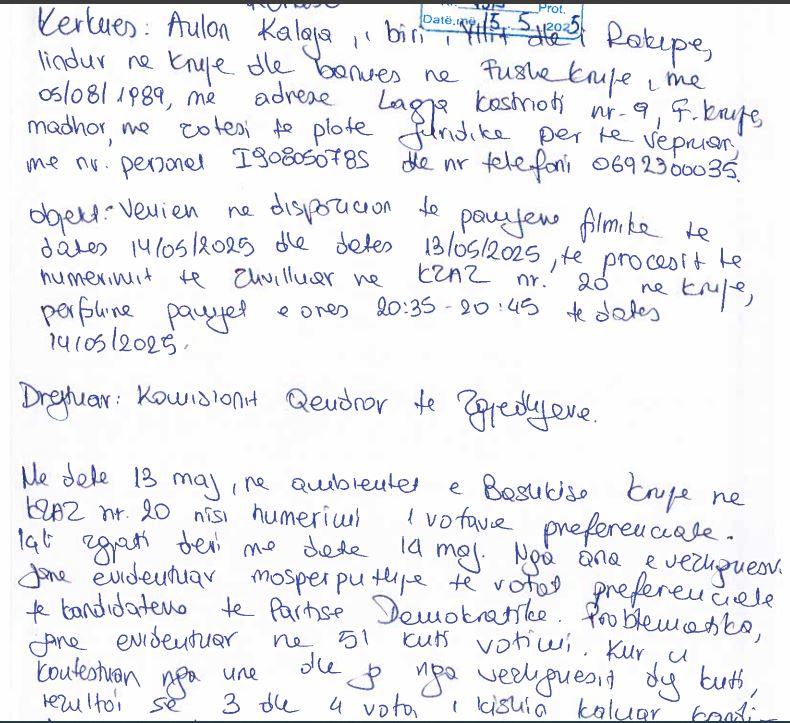 Prot.
Datë, më 15. 5. 2025
Kerkues: Aulon Kalaja, i biri i Yllit dhe i Rakipe,
lindur ne Kruje dhe banues ne Fushe Kruje, me
05/08/1989, me adrese Lagja Kastrioti nr. 9, F. Kruje,
madhor, me zotesi te plote juridike per te vepruar,
me nr. personal I90805078S dhe nr telefoni 0692300035.
Objekt: Venien ne dispozicion te pamjeve filmike te
dates 14/05/2025 dhe dates 13/05/2025, te procesit te
numerimit te zhvilluar ne KZAZ nr. 20 ne Kruje,
perfshine pamjet e ores 20:35 - 20:45 te dates
14/05/2025.
Drejtuar: Komisionit Qendror te Zgjedhjeve.
Me date 13 maj, ne ambientet e Bashkise Kruje ne
KZAZ nr. 20 nisi numerimi i votave preferenciale.
zgjati deri me date 14 maj. Nga ana e vezhguesv.
Jane evidentuar mosperputhje te votat preferenciale
te kandidateve te Partise Demokratike. Problematika,
jane evidentuar ne 51 kuti votimi. Kur u
kontestuan nga une dhe nga vezhguesit dy kuti,
rezultoi se 3 dhe 4 vota i kishin kaluar